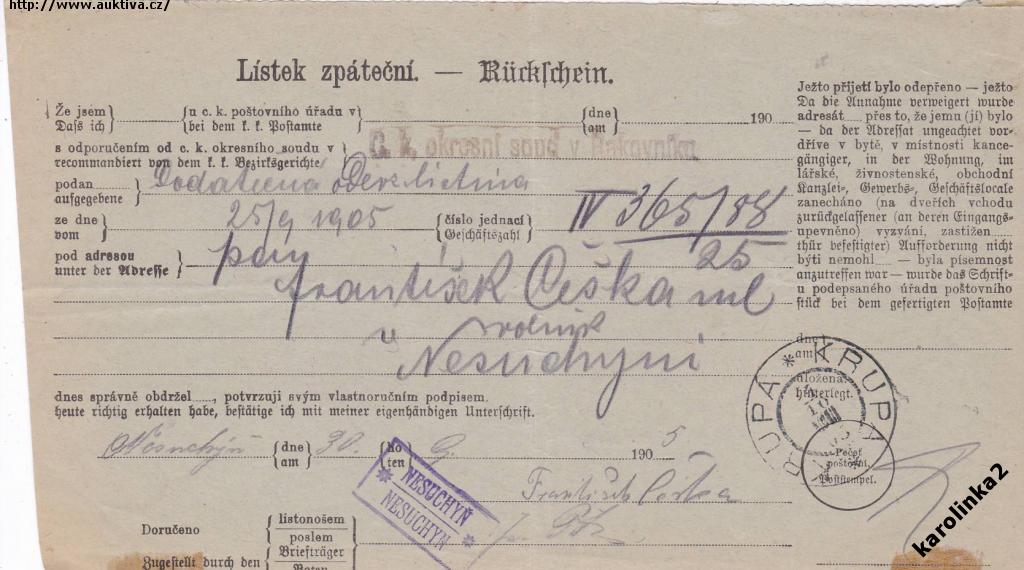 http://www.auktiva.cz/
Lístek zpáteční. — Rückschein.
Že jsem u c. k. poštovního úřadu v dne 190
Dass ich bei dem k. k. Postamte am
s odporučením od c. k. okresního soudu v C. k. okresní soud v Rakovníku
recommandiert von dem k. k. Bezirksgerichte
podan
aufgegebene
ze dne 25/9 1905 číslo jednací IV 365/88
vom Geschäftszahl 25
pod adresou pan
unter der Adresse
František Češka ml
rolník
v Nesuchyni
dnes správně obdržel, potvrzuji svým vlastnoručním podpisem.
heute richtig erhalten habe, bestätige ich mit meiner eigenhändigen Unterschrift.
Nesuchyň dne 30. ho 9. 190 5
am ten
NESUCHYŇ
NESUCHYN
František Češka
Doručeno listonošem
poslem
Briefträger
Zugestellt durch den Boten
Ježto přijetí bylo odepřeno — ježto
Da die Annahme verweigert wurde
adresát přes to, že jemu (jí) bylo
— da der Adressat ungeachtet vor-
dříve v bytě, v místnosti kance-
gängiger, in der Wohnung, im
lářské, živnostenské, obchodní
Kanzlei-, Gewerbs-, Geschäftslocale
zanecháno (na dveřích vchodu
zurückgelassener (an deren Eingangs-
upevněno) vyzvání, zastižen
thür befestigter) Aufforderung nicht
býti nemohl — byla písemnost
anzutreffen war — wurde das Schrift-
u podepsaného úřadu poštovního
stück bei dem gefertigten Postamte
dne
am
uložena.
hinterlegt.
KRUPÁ * KRUPA
Pečeť
poštovní.
Poststempel.
karolinka2